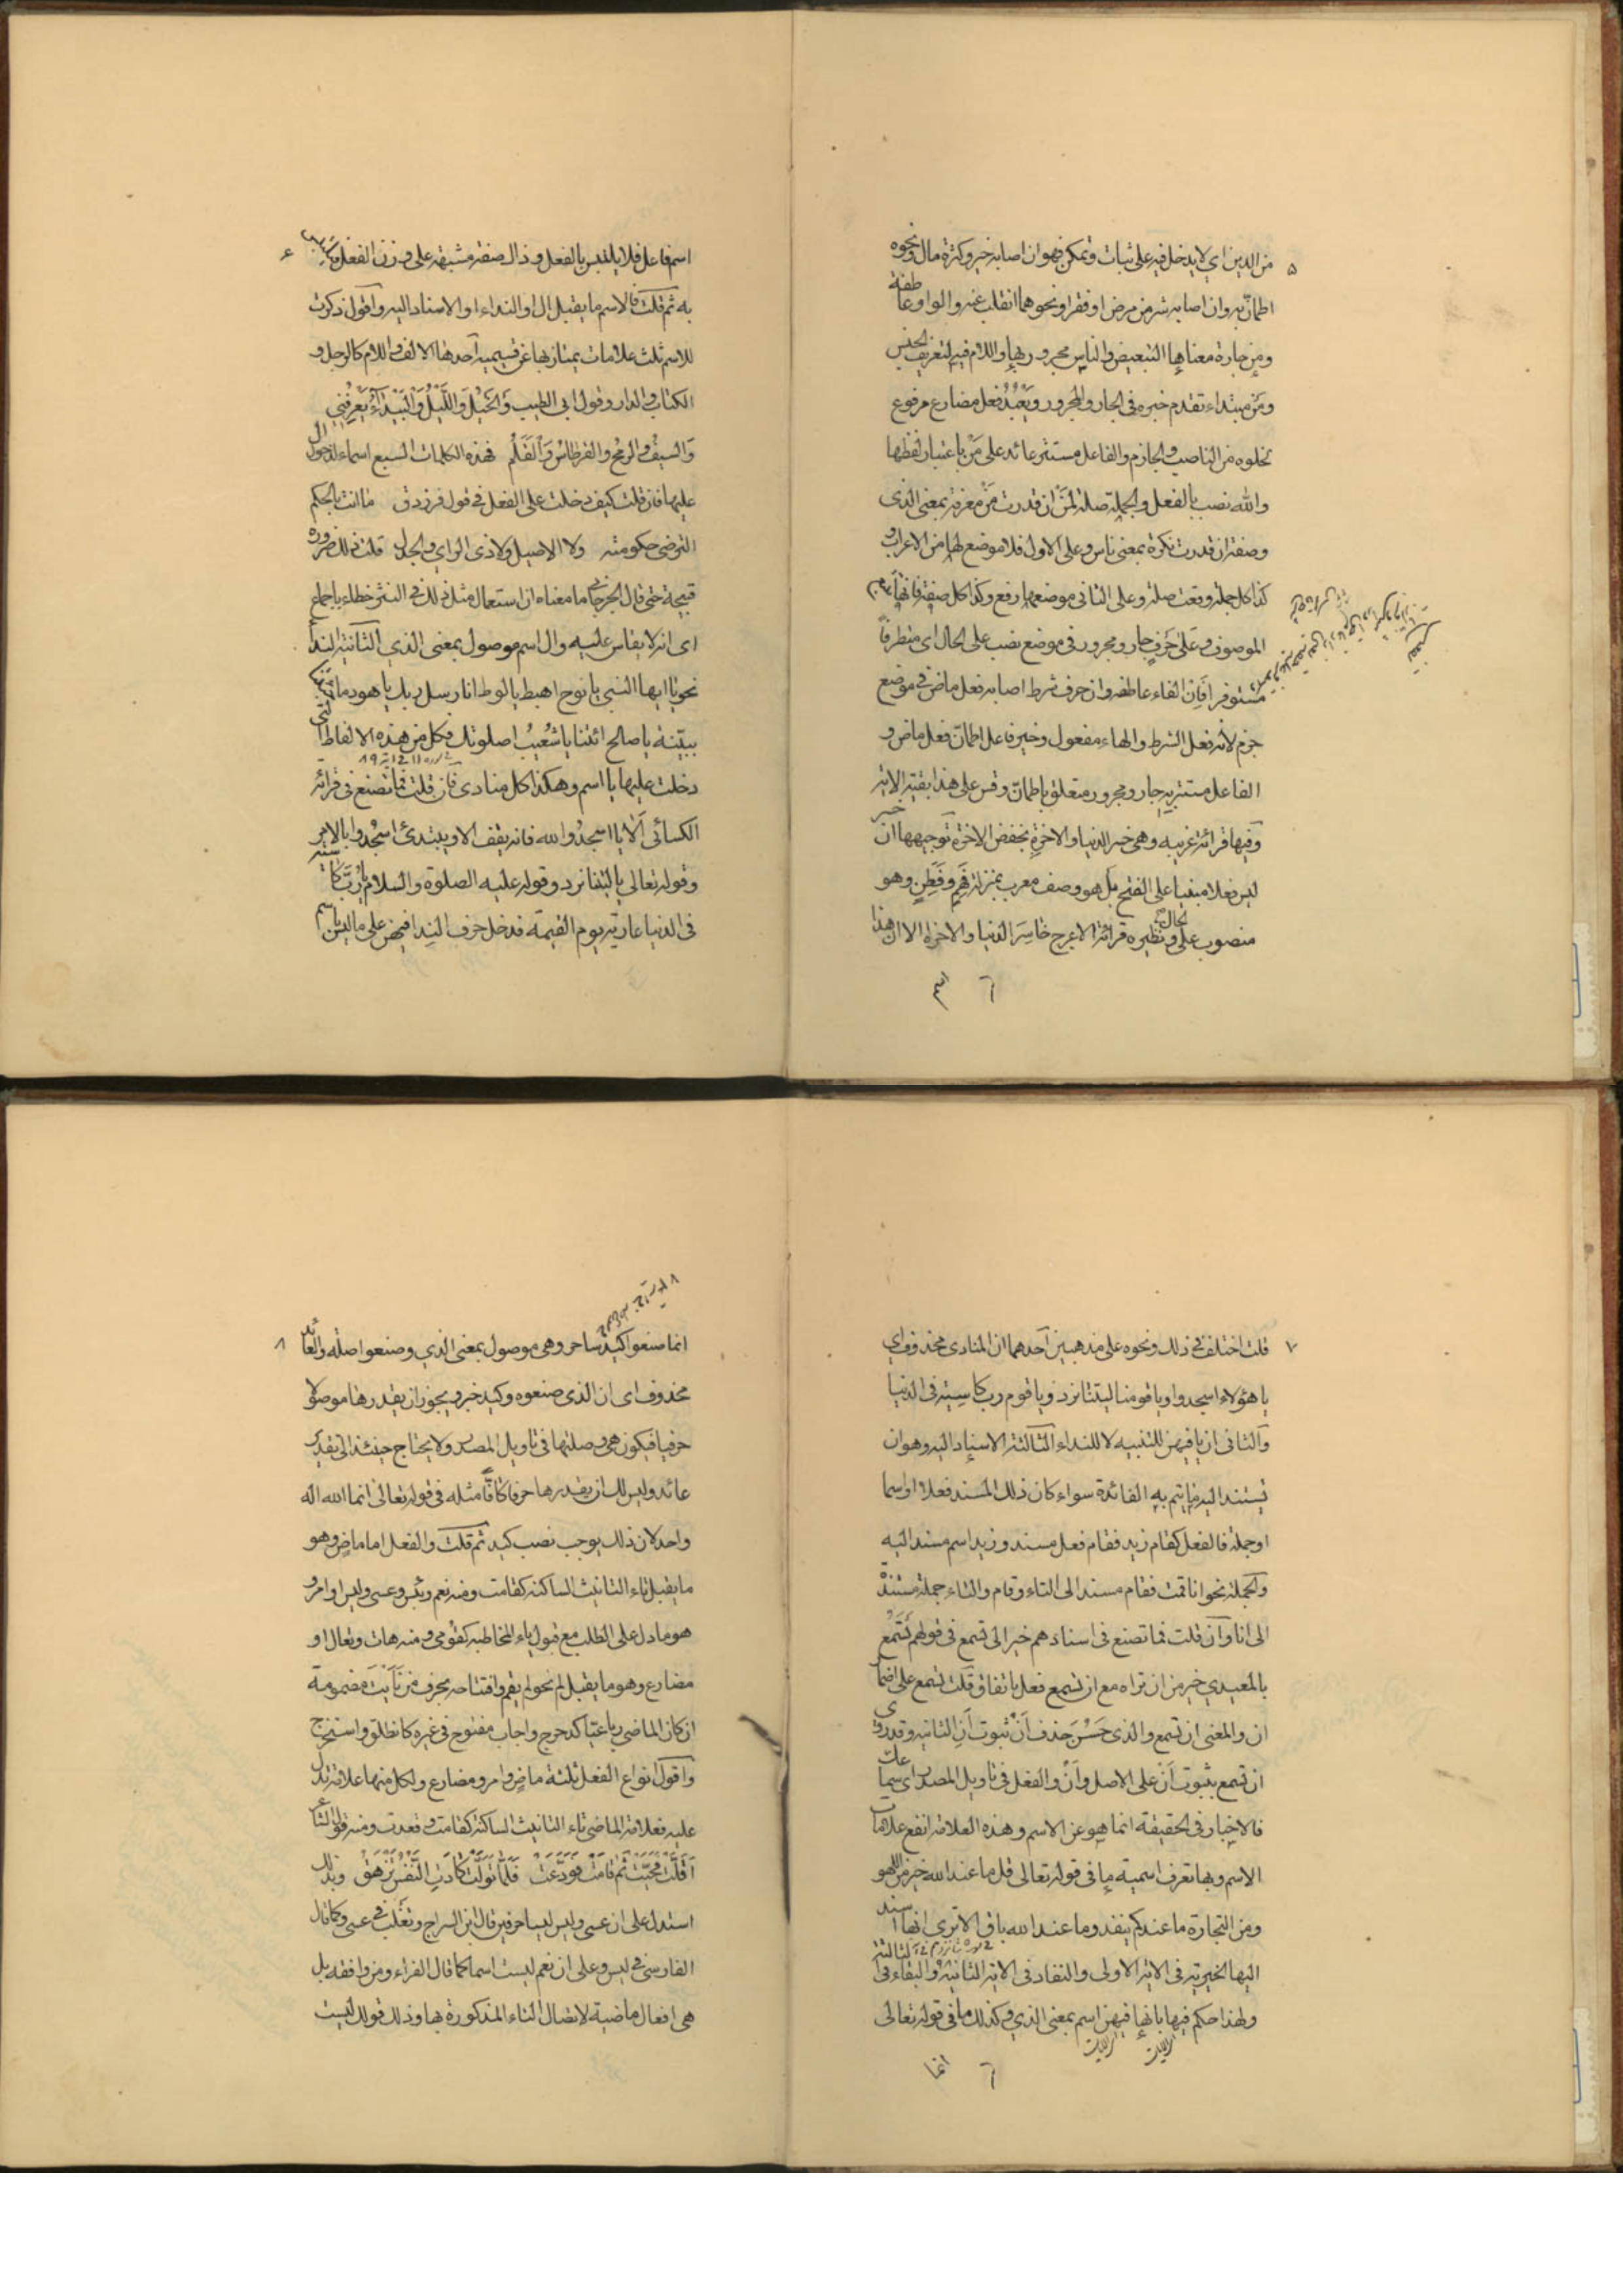 ۵
من الدين اي لا يدخل فيه على ثبات وتمكن فهو ان اصابه خير وكثرة مال ونحوه
اطمأنّ به وان اصابه شر من مرض او فقر او نحوهما انقلب عنه والواو عاطفة
ومن جارة معناها التبعيض والناس مجرور بها واللام فيه لتعريف الجنس
ومَن مبتداء تقدم خبره فى الجار والمجرور ويَعْبُدُ فعل مضارع مرفوع
لخلوه من الناصب والجازم والفاعل مستتر عائد على مَنْ باعتبار لفظها
والله نصب بالفعل والجملة صلة لمَنْ ان قدرت مَنْ معرفة بمعنى الذى
وصفة ان قدرت نكرة بمعنى ناس وعلى الاول فلا موضع لها من الاعراب و
كذا كل جملة وقعت صلة وعلى الثانى موضعها رفع وكذا كل صفة فانها
الموصوف وعَلىٰ حَرفٍ جار ومجرور فى موضع نصب على الحال اى متطرفاً
مستوفزا فَاِن الفاء عاطفه وان حرف شرط اصابه فعل ماض فى موضع
جزم لأنه فعل الشرط والهاء مفعول وخير فاعل اطمانّ فعل ماض و
الفاعل مستتر به جار ومجرور متعلق باطمانّ وقس على هذا بقية الاية
وفيها قرائة غريبه وهى خسر الدنيا والاخرةِ بخفض الاخرة توجيهها ان خسر
ليس فعلا مبنيا على الفتح بل هو وصف معرب بمنزلة فَهِمٍ وفَطِنٍ وهو
منصوب على الحال ونظيره قرائة الاعرج خاسِرَ الدنيا والاخرة الا ان هذا
۶
اسم فاعل فلا يلتبس بالفعل وذاك صفة مشبهة على وزن الفعل
به ثم قلت فالاسم ما يقبل ال او النداء او الاسناد اليه واقول ذكرت
للاسم ثلث علامات يمتاز بها عن قسيميه احدها الالف واللام كالرجل و
الكتاب والدار وقول ابى الطيب وَالخَيْلُ وَاللَّيْلُ وَالبَيْداءُ يَعْرِفُنِي
وَالسيفُ والرمْحُ والقرطاسُ وَالقَلَمُ فهذه الكلمات السبع اسماء لدخول ال
عليها فان قلت كيف دخلت على الفعل فى قول فرزدق ما انت بالحكم
الترضى حكومته ولا الاصيل ولا ذى الراى والجدل قلت ذلك ضرورة
قبيحة حتى قال الجرجانى ما معناه ان استعمال مثل ذلك فى النثر خطاء باجماع
اى انه لا يقاس عليه وال اسم موصول بمعنى الذي الثانية النداء
نحو يا ايها النبى يا نوح اهبط يا لوط انا رسل ربك يا هود ما جئتنا
ببيّنة يا صالح ائتنا يا شُعَيبُ اصلوتك فكل من هذه الالفاظ التى
دخلت عليها يا اسم وهكذا كل منادى فان قلت فما تصنع فى قرائة
الكسائى اَلا يا اسجدُوا لله فانه يقف الا ويبتدئ اسْجُدوا بالامر
وقوله تعالى يا ليتنا نرد وقوله عليه الصلوة والسلام يا رُبَّ كاسية
فى الدنيا عارية يوم القيمة فدخل حرف النداء فيهن على ما ليس باسم
۷
قلت اختلف فى ذلك ونحوه على مذهبين احدهما ان المنادى محذوف اي
يا هؤلاء اسجدوا ويا قومنا ليتنا نرد ويا قوم رب كاسِيَة فى الدنيا
والثانى ان يا فيهن للتنبيه لا للنداء الثالثة الاسناد اليه وهو ان
تسند اليه ما يتم به الفائدة سواء كان ذلك المسند فعلا او اسما
او جملة فالفعل كقام زيد فقام فعل مسند وزيد اسم مسند اليه
والجملة نحو انا قمت فقام مسند الى التاء وقام والتاء جملة مسندة
الى انا وان قلت فما تصنع فى اسنادهم خير الى تسمع فى قولهم تَسمَعُ
بالمعيدي خير من ان تراه مع ان تسمع فعل باتفاق قلت تسمع على اضمار
ان والمعنى ان تسمع والذى حَسَّنَ حذف اَنْ ثبوت اَنِ الثانية وقد روى
ان تسمع بثبوت اَنْ على الاصل وانْ والفعل فى تاويل المصدر اى سماعك
فالاخبار فى الحقيقة انما هو عن الاسم وهذه العلامة انفع علامات
الاسم وبها تعرف اسمية ما فى قوله تعالى قل ما عند الله خير من اللهو
ومن التجارة ما عندكم ينفد وما عند الله باق الا ترى انها اسند
اليها الخيرية فى الاية الاولى والنفاد فى الاية الثانية والبقاء فى الثالثة
ولهذا حكم فيها بانها فيهن اسم بمعنى الذي وكذلك ما فى قوله تعالى
انما
۸
انما صنعوا كيد ساحر وهى موصول بمعنى الذي وصنعوا صلة والعائد
محذوف اى ان الذى صنعوه وكيد خبر ويجوز ان يقدرها موصولا
حرفيا فيكون هى وصلتها فى تاويل المصدر ولا يحتاج حينئذ الى تقدير
عائد وليس لك ان يقدرها حرفا كافّا مثله فى قوله تعالى انما الله اله
واحد لان ذلك يوجب نصب كيد ثم قلت والفعل اما ماضٍ وهو
ما يقبل تاء التانيث الساكنة كقامت ومنه نعم وبئس وعسى وليس او امر و
هو ما دل على الطلب مع قبول ياء المخاطبة كقومى ومنه هات وتعال او
مضارع وهو ما يقبل لم نحو لم يقم وافتتاحه بحرف من نَاَيْتُ مضمومة
ان كان الماضى رباعيّا كدحرج واجاب مفتوح فى غيره كانطلق واستخرج
واقول انواع الفعل ثلثة ماض وامر ومضارع ولكل منها علامة تدل
عليه فعلامة الماضى تاء التانيث الساكنة كقامت وقعدت ومنه قول الشاعر
اَلَمَّتْ فَحَيَّتْ ثمّ قامَتْ فوَدَّعَتْ فَلَمَّا تَوَلَّتْ كادَتِ النَّفْسُ تَزْهَقُ وبذلك
استدل على ان عسى وليس ليسا حرفين كما قال ابن السراج وثعلب فى عسى وكما قال
الفارسى فى ليس وعلى ان نعم ليست اسما كما قال الفراء ومن وافقه بل
هى افعال ماضية لاتصال التاء المذكورة بها وذلك قولك ليست